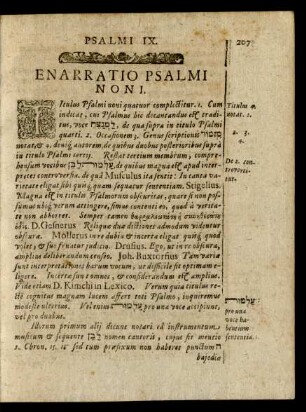 PSALMI IX.
207
ENARRATIO PSALMI
NONI.
Titulus Psalmi noni quatuor complectitur. 1. Cum
indicat, cui Psalmus hic decantandus est tradi
tus, voce למנצח, de qua supra in titulo Psalmi
quarti. 2. Occasionem 3. Genus scriptionis
notat, & 4. deniq; autorem, de quibus duobus posterioribus sup
ra in titulo Psalmi tertij. Restat tertium membrum, compre-
hensum vocibus de quibus magna est apud inter-
pretes controversia. de quâ Musculus ita fatetur: In tanta va
rietate eligat sibi quisq; quam sequatur sententiam. Stigelius.
Magna est in titulo Psalmorum obscuritas, quare si non possi-
mus nudè rerum attingere, simus contenti eo, quod à verita-
te non abhorret. Semper tamen
D. Gesnerus Relique duæ dictiones admodum videntur
obscuræ. Möllerus in re dubia & incerta eligat quisq; quod
volet, & suo fruatur judicio. Drusius. Ego, ut in re obscura,
amplius deliberandum censeo. Joh. Buxtorfius Tam variæ
sunt interpretationes harum vocum, ut difficile sit optimam e-
ligere. Interim suus conatus, & considerandi
Vide etiam D. Kimchi in Lexico. Verum quia titulus re-
ctè cognitus magnam lucem affert toti Psalmo, inquiremus
modestè ulterius. pro una voce accipiunt,
vel pro duabus.
Illorum primum alij dicunt notari instrumentum
musicum & sequente לבן nomen cantoris, cujus fit mentio
1. Chron. 15. 18 sed tum præfixum non haberet punctum
Titulus
notat. 1.
2. 3.
4.
De 2. con-
troversia.
pro una
voce ha-
bentium
sententia.